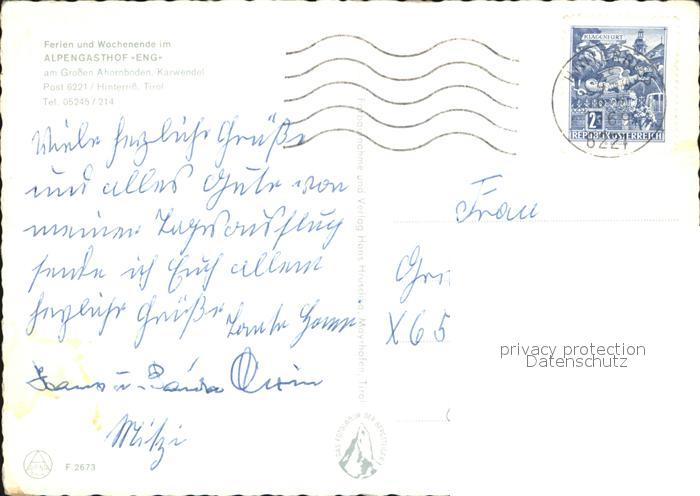 Ferien und Wochenende im
ALPENGASTHOF »ENG«
am Großen Ahornboden, Karwendel
Post 6221 / Hinterriß, Tirol
Tel. 05245 / 214
Viele herzliche Grüße
und alles Gute von
meinem Tagesausflug
sende ich Euch allem
herzliche Grüße Tante
Hans u.
Mitzi
F 2673
Fotoaufnahme und Verlag Hans Mayrhofen, Tirol
KLAGENFURT
2S
REPUBLIK ÖSTERREICH
HINTERRISS
6221
Frau
X65
privacy protection
Datenschutz